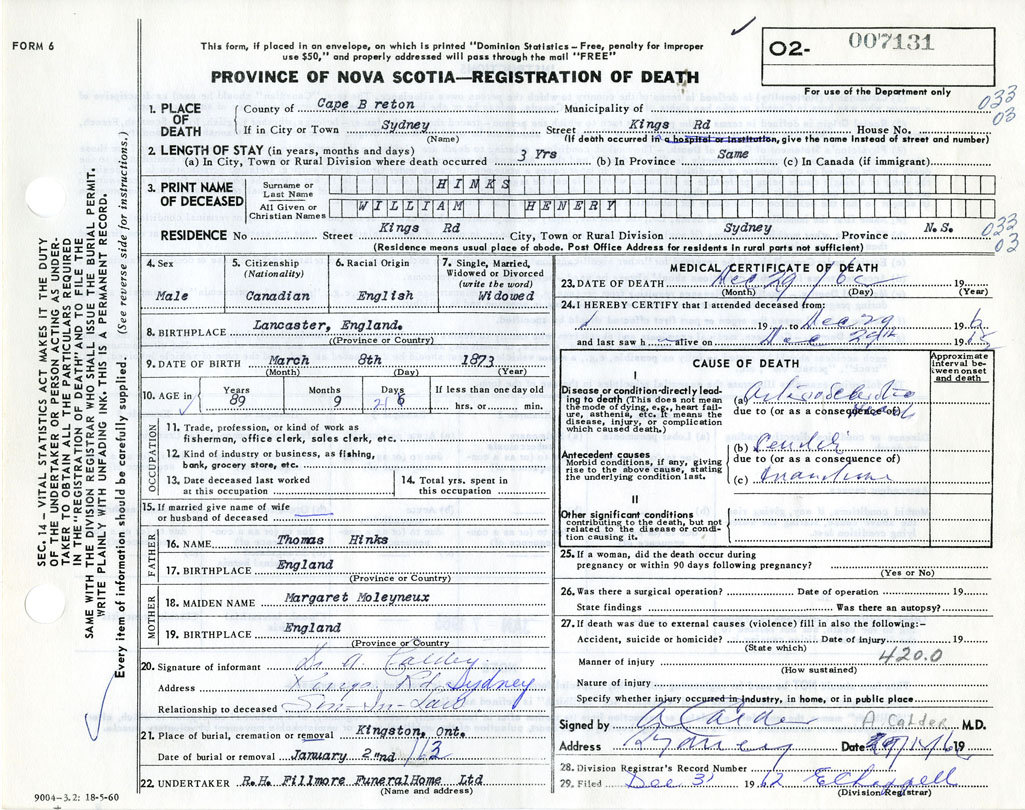 FORM 6
This form, if placed in an envelope, on which is printed "Dominion Statistics – Free, penalty for improper
use $50," and properly addressed will pass through the mail "FREE"
O2- 007131
For use of the Department only
PROVINCE OF NOVA SCOTIA—REGISTRATION OF DEATH
033
03
1. PLACE OF DEATH
County of Cape B reton Municipality of
If in City or Town Sydney Street Kings Rd House No.
(Name) (If death occurred in a hospital or institution, give the name instead of street and number)
2. LENGTH OF STAY (in years, months and days)
(a) In City, Town or Rural Division where death occurred 3 Yrs (b) In Province Same (c) In Canada (if immigrant)
3. PRINT NAME OF DECEASED
Surname or Last Name HINKS
All Given or Christian Names WILLIAM HENERY
RESIDENCE No Street Kings Rd City, Town or Rural Division Sydney Province N.S.
033
03
(Residence means usual place of abode. Post Office Address for residents in rural parts not sufficient)
4. Sex Male
5. Citizenship (Nationality) Canadian
6. Racial Origin English
7. Single, Married, Widowed or Divorced (write the word) Widowed
8. BIRTHPLACE Lancaster, England.
((Province or Country)
9. DATE OF BIRTH March 8th 1873
(Month) (Day) (Year)
10. AGE in Years 89 Months 9 Days 21 6 If less than one day old
hrs. or min.
OCCUPATION
11. Trade, profession, or kind of work as
fisherman, office clerk, sales clerk, etc.
12. Kind of industry or business, as fishing,
bank, grocery store, etc.
13. Date deceased last worked
at this occupation
14. Total yrs. spent in
this occupation
15. If married give name of wife
or husband of deceased
FATHER
16. NAME Thomas Hinks
17. BIRTHPLACE England
(Province or Country)
MOTHER
18. MAIDEN NAME Margaret Moleyneux
19. BIRTHPLACE England
(Province or Country
20. Signature of informant
Address Kings Rd, Sydney
Relationship to deceased Son-In-Law
21. Place of burial, cremation or removal Kingston, Ont.
Date of burial or removal January 2"nd /63
22. UNDERTAKER R.H. Fillmore FuneralHome Ltd
(Name and address)
9004-3.2: 18-5-60
MEDICAL CERTIFICATE OF DEATH
23. DATE OF DEATH Dec 29 / 62 19
(Month) (Day) (Year)
24. I HEREBY CERTIFY that I attended deceased from:
19 to Dec 29 19 6
and last saw h alive on Dec 29th 19
CAUSE OF DEATH
Approximate interval between onset and death
I
Disease or condition directly leading to death (This does not mean
the mode of dying, e.g., heart failure, asthenia, etc. It means the
disease, injury, or complication
which caused death.)
(a)
due to (or as a consequence of)
Antecedent causes
Morbid conditions, if any, giving
rise to the above cause, stating
the underlying condition last.
(b)
due to (or as a consequence of)
(c)
II
Other significant conditions
contributing to the death, but not
related to the disease or condition causing it.
25. If a woman, did the death occur during
pregnancy or within 90 days following pregnancy?
(Yes or No)
26. Was there a surgical operation? Date of operation 19
State findings Was there an autopsy?
27. If death was due to external causes (violence) fill in also the following:–
Accident, suicide or homicide? Date of injury 19
(State which)
Manner of injury 420.0
(How sustained)
Nature of injury
Specify whether injury occurred in industry, in home, or in public place
Signed by A Calder A. Calder M.D.
Address Sydney Date 19
28. Division Registrar's Record Number
29. Filed Dec 31 1962
(Division Registrar)
SEC. 14 – VITAL STATISTICS ACT MAKES IT THE DUTY
OF THE UNDERTAKER OR PERSON ACTING AS UNDER-
TAKER TO OBTAIN ALL THE PARTICULARS REQUIRED
IN THE "REGISTRATION OF DEATH" AND TO FILE THE
SAME WITH THE DIVISION REGISTRAR WHO SHALL ISSUE THE BURIAL PERMIT.
WRITE PLAINLY WITH UNFADING INK. THIS IS A PERMANENT RECORD.
Every item of information should be carefully supplied. (See reverse side for instructions.)